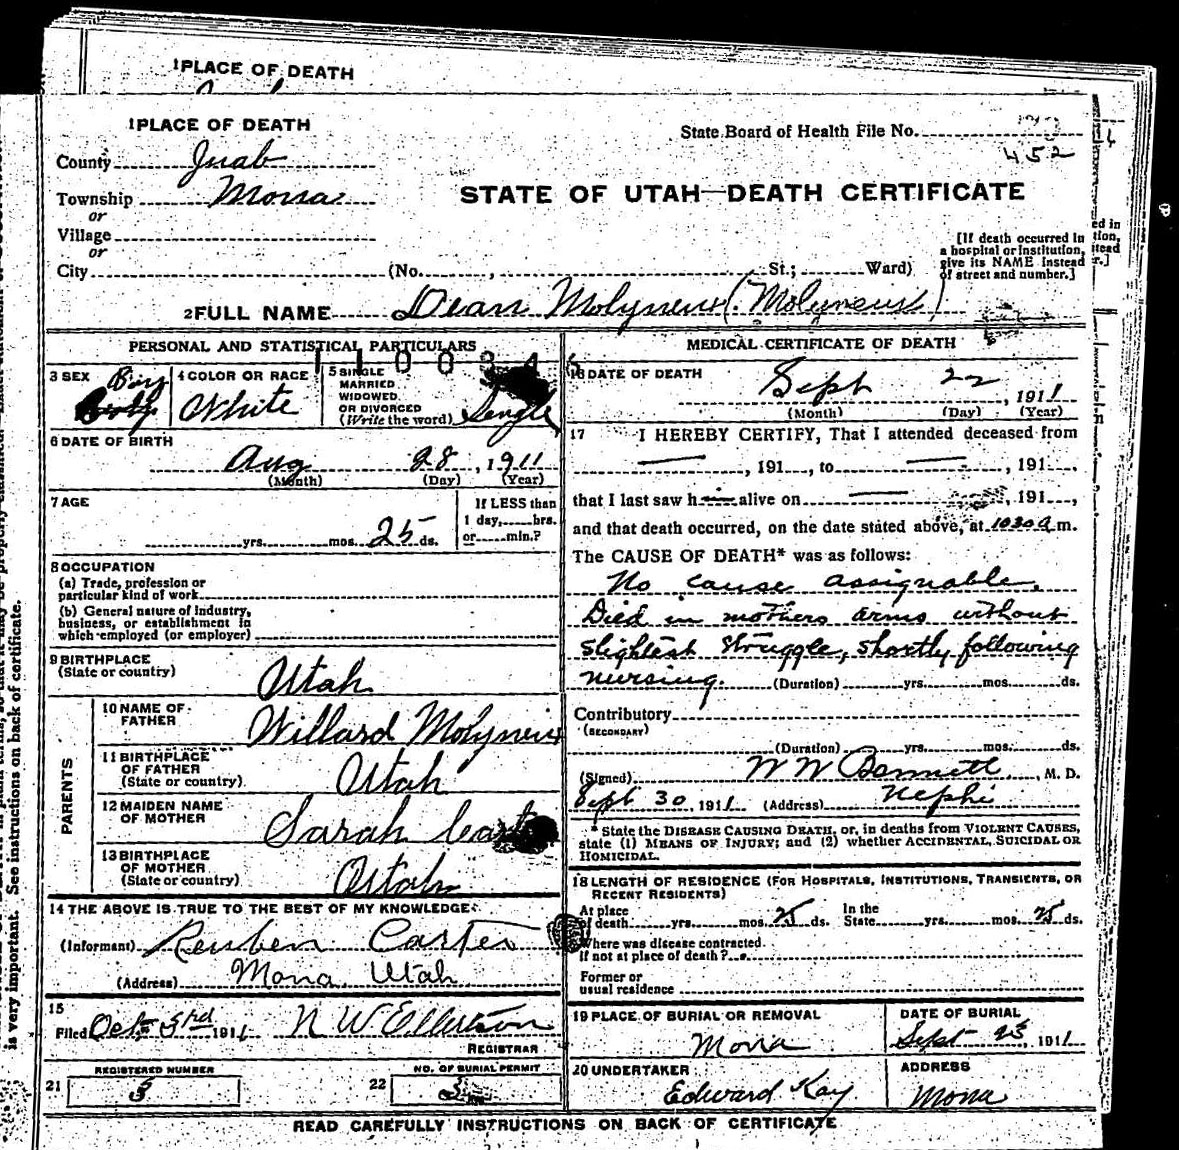 1 PLACE OF DEATH
1 PLACE OF DEATH
County Juab
State Board of Health File No.
452
Township Mona
or
Village
or
City (No. , St.; Ward)
STATE OF UTAH—DEATH CERTIFICATE
[If death occurred in
a hospital or institution,
give its NAME instead
of street and number.]
2 FULL NAME Dean Molyneux (Molyneux)
PERSONAL AND STATISTICAL PARTICULARS
110034
3 SEX Boy
4 COLOR OR RACE White
5 SINGLE
MARRIED
WIDOWED
OR DIVORCED
(Write the word) Single
6 DATE OF BIRTH
Aug 28, 1911
(Month) (Day) (Year)
7 AGE
yrs. mos. 25 ds.
If LESS than
1 day, hrs.
or min.?
8 OCCUPATION
(a) Trade, profession or
particular kind of work
(b) General nature of industry,
business, or establishment in
which employed (or employer)
9 BIRTHPLACE
(State or country) Utah
PARENTS
10 NAME OF
FATHER Willard Molyneux
11 BIRTHPLACE
OF FATHER
(State or country) Utah
12 MAIDEN NAME
OF MOTHER Sarah
13 BIRTHPLACE
OF MOTHER
(State or country) Utah
14 THE ABOVE IS TRUE TO THE BEST OF MY KNOWLEDGE
(Informant) Reuben Carter
(Address) Mona, Utah
15
Filed Oct 3rd 1911 N W Ellertson
REGISTRAR
REGISTERED NUMBER
21 5
NO. OF BURIAL PERMIT
22
MEDICAL CERTIFICATE OF DEATH
16 DATE OF DEATH
Sept 22, 1911
(Month) (Day) (Year)
17 I HEREBY CERTIFY, That I attended deceased from
, 191 , to , 191 ,
that I last saw h alive on , 191 ,
and that death occurred, on the date stated above, at 1030 a m.
The CAUSE OF DEATH* was as follows:
No cause assignable.
Died in mothers arms without
slightest struggle, shortly following
nursing. (Duration) yrs. mos. ds.
Contributory
(SECONDARY)
(Duration) yrs. mos. ds.
(Signed) W W Bennett, M. D.
Sept 30, 1911 (Address) Nephi
* State the DISEASE CAUSING DEATH, or, in deaths from VIOLENT CAUSES,
state (1) MEANS OF INJURY; and (2) whether ACCIDENTAL, SUICIDAL OR
HOMICIDAL.
18 LENGTH OF RESIDENCE (FOR HOSPITALS, INSTITUTIONS, TRANSIENTS, OR
RECENT RESIDENTS)
At place
of death yrs. mos. 25 ds.
In the
State yrs. mos. 25 ds.
Where was disease contracted
if not at place of death?
Former or
usual residence
19 PLACE OF BURIAL OR REMOVAL
Mona
DATE OF BURIAL
Sept 23, 1911
20 UNDERTAKER
Edward Kay
ADDRESS
Mona
READ CAREFULLY INSTRUCTIONS ON BACK OF CERTIFICATE
is very important. See instructions on back of certificate.